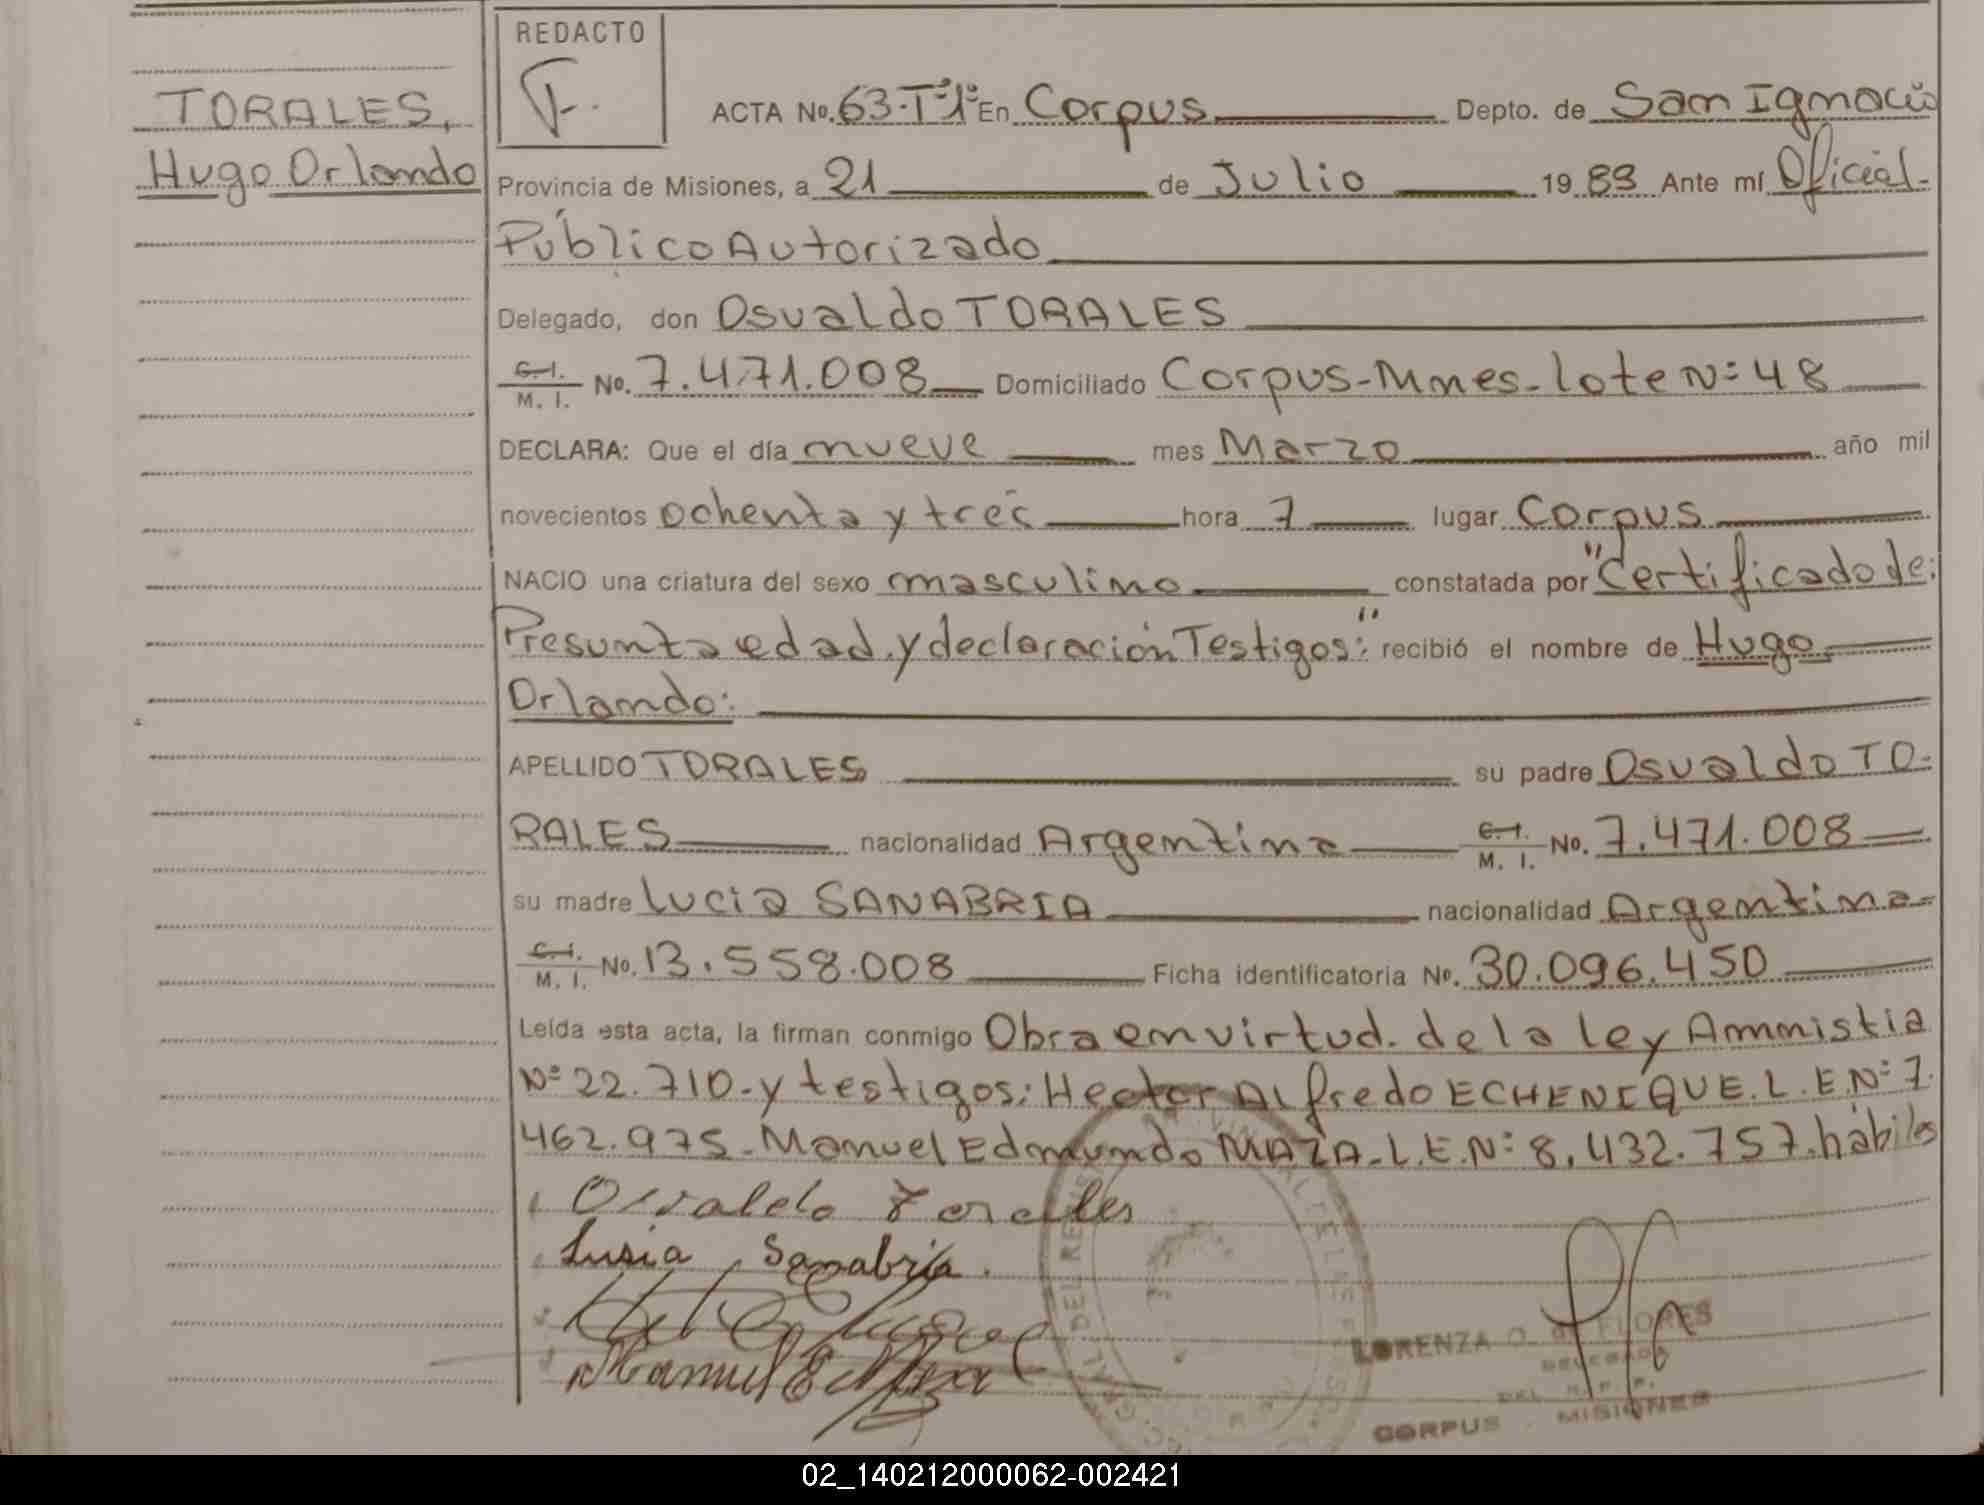 REDACTO
TORALES,
Hugo Orlando
ACTA No. 63-Tº1º En Corpus Depto. de San Ignacio
Provincia de Misiones, a 21 de Julio 1983 Ante mí Oficial
Público Autorizado
Delegado, don Osvaldo TORALES
C. I. / M. I. No. 7.471.008 Domiciliado Corpus-Mnes-lote Nº 48
DECLARA: Que el día nueve mes Marzo año mil
novecientos ochenta y tres hora 7 lugar Corpus
NACIO una criatura del sexo masculino constatada por "Certificado de:
Presunta edad y declaración Testigos:" recibió el nombre de Hugo
Orlando:
APELLIDO TORALES su padre Osvaldo TO-
RALES nacionalidad Argentina C. I. / M. I. No. 7.471.008
su madre Lucia SANABRIA nacionalidad Argentina
C. I. / M. I. No. 13.558.008 Ficha identificatoria No. 30.096.450
Leída esta acta, la firman conmigo Obra en virtud de la ley Ammistia
Nº 22.710-y testigos: Hector Alfredo ECHENIQUE. L.E.Nº 7.
462.975-Manuel Edmundo MAZA-L.E.Nº 8.432.757.hábiles
Osvaldo Torales
Lusia Sanabria.
Manuel E Maza
LORENZA O. de FLORES
DELEGADA
DEL R. P. P.
CORPUS - MISIONES
02_140212000062-002421